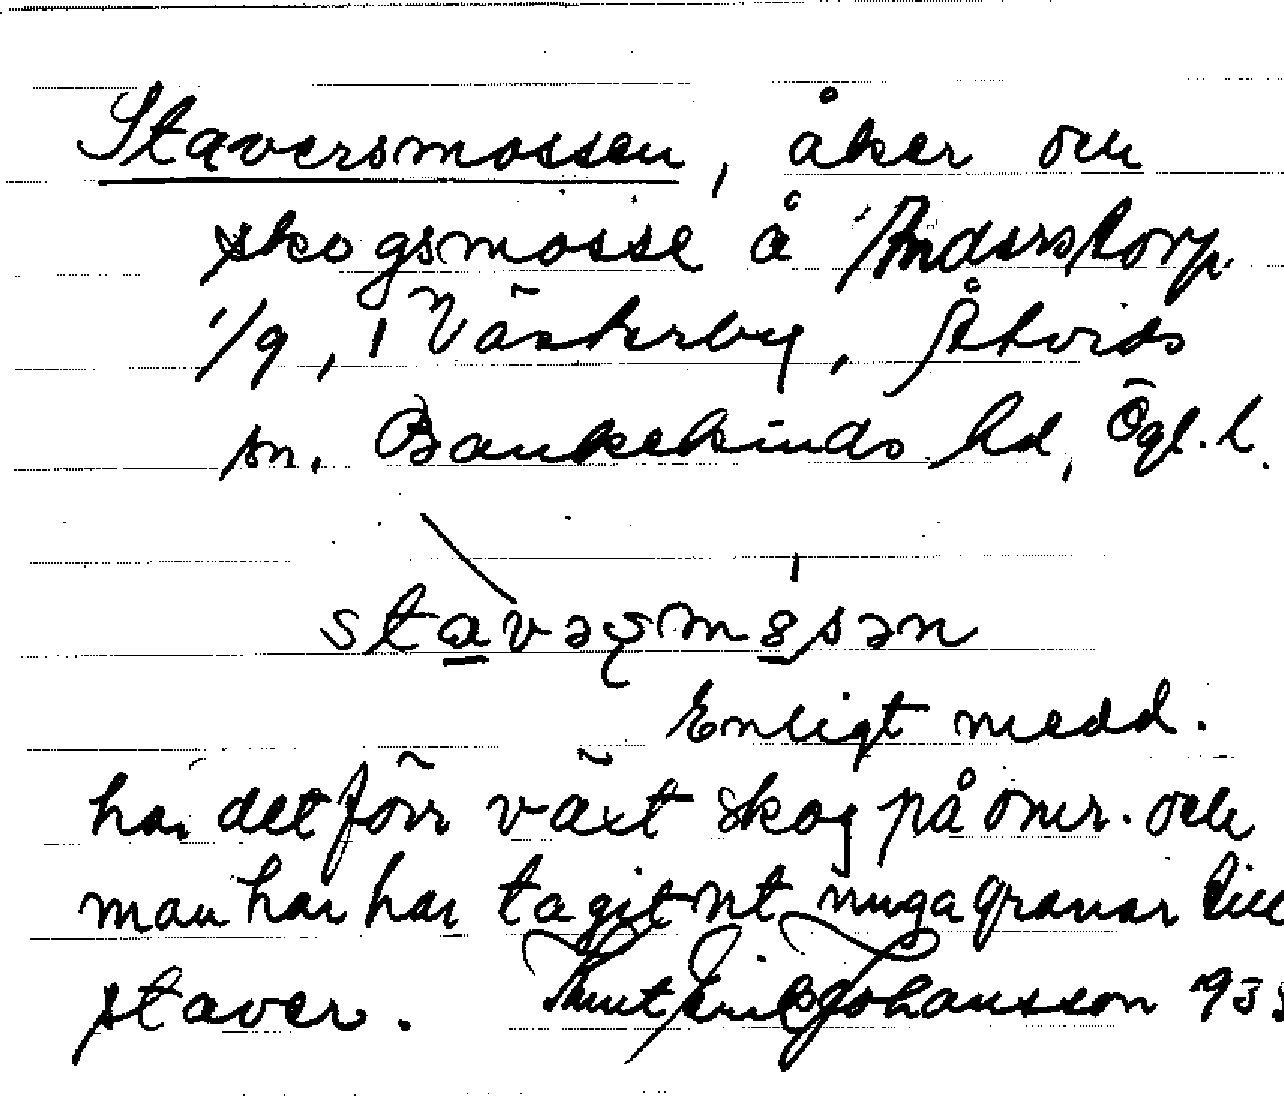 Staversmossen, åker och
skogsmosse å Anderstorp
1/9, i Västerby, Åtvids
sn. Bankekinds hd, Ögl. l.
Enligt medd.
har det förr växt skog på omr. och
man har här tagit ut unga granar till
staver. Knut Erik Johansson 193